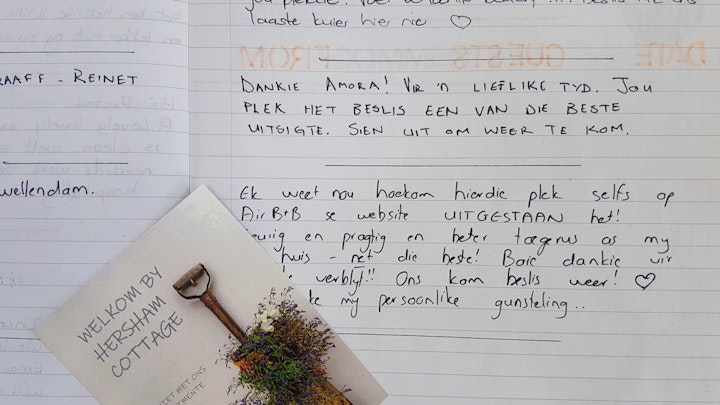 laaste kuier hier nie ♡
DATE GUESTS FROM
RAAFF - REINET
DANKIE AMORA! VIR 'N LIEFLIKE TYD. JOU
PLEK HET BESLIS EEN VAN DIE BESTE
UITSIGTE. SIEN UIT OM WEER TE KOM.
wellendam.
Ek weet nou hoekom hierdie plek selfs op
AirB+B se website UITGESTAAN het!
en pragtig en beter toegerus as my
huis - net die beste! Baie dankie vir
verblyf!! Ons kom beslis weer! ♡
my persoonlike gunsteling..
WELKOM BY
HERSHAM
COTTAGE
MET ONS